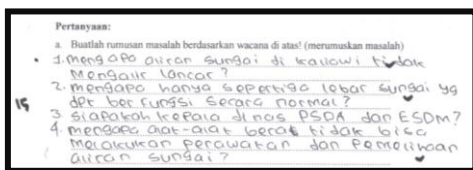 Pertanyaan:
a. Buatlah rumusan masalah berdasarkan wacana di atas! (merumuskan masalah)
1. mengapa aliran sungai di kaliowi tidak
mengalir lancar?
2. mengapa hanya sepertiga lebar sungai yg
dpt berfungsi secara normal?
15
3. siapakah kepala dinas PSDA dan ESDM?
4. mengapa alat-alat berat tidak bisa
melakukan perawatan dan pemeliharaan
aliran sungai?